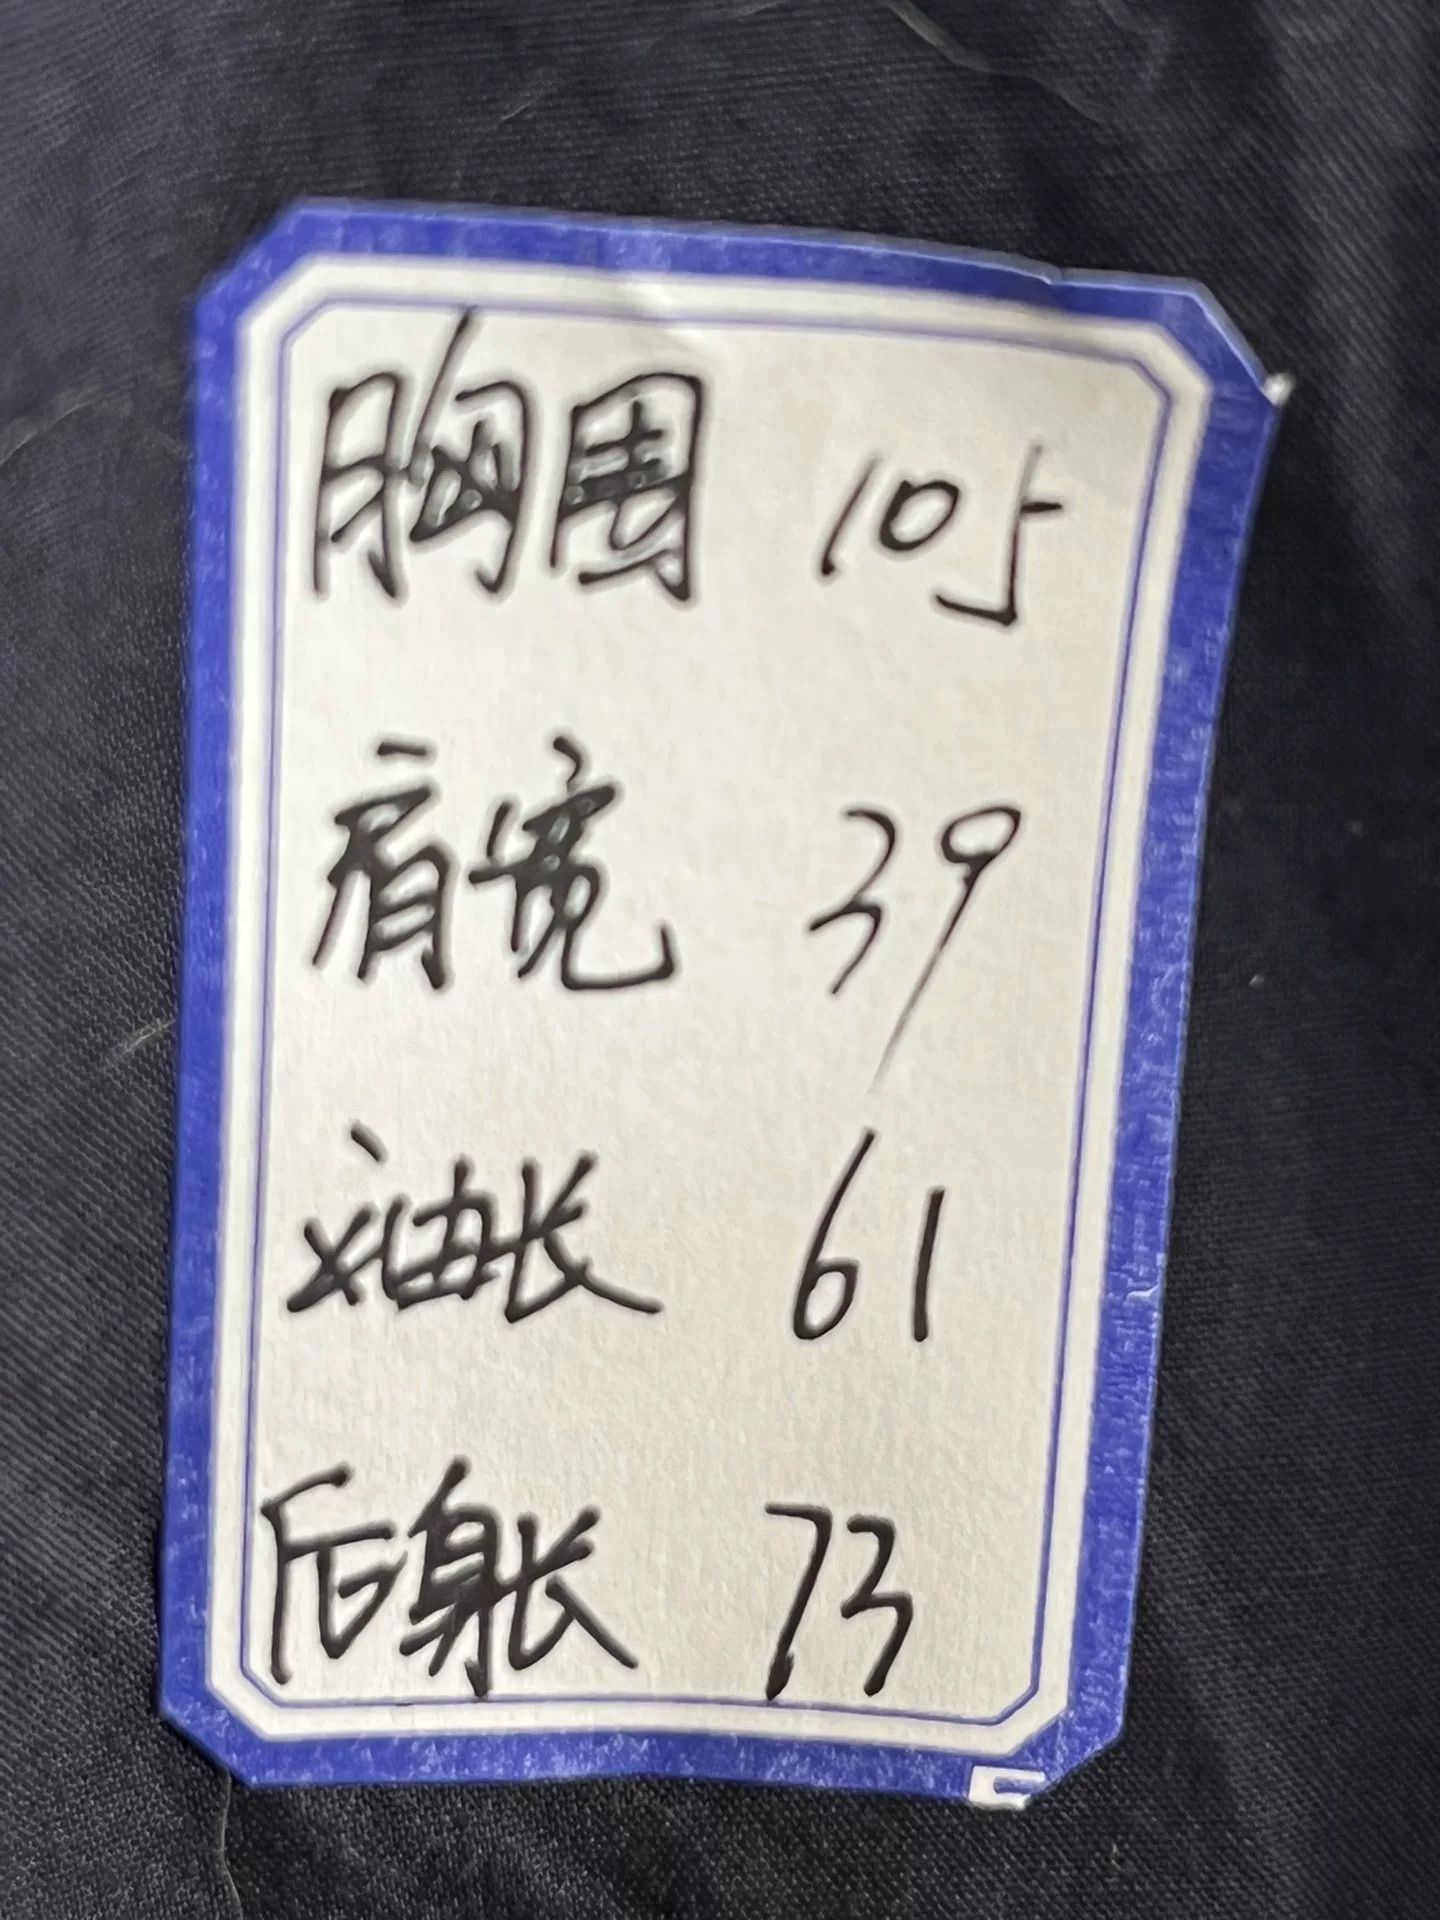 胸围 105
肩宽 39
袖长 61
后身长 73